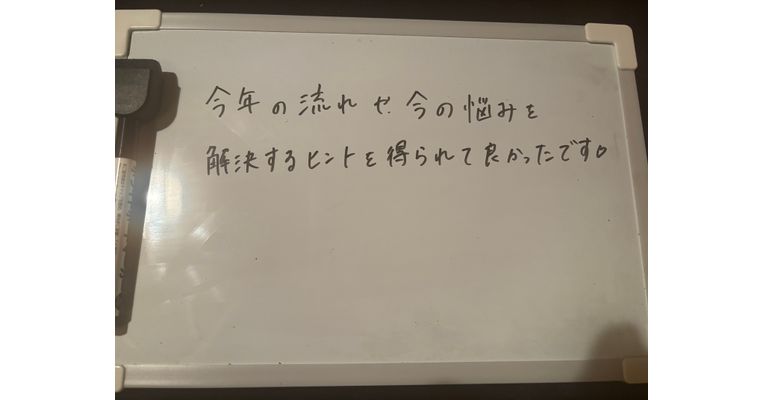 今年の流れや今の悩みを
解決するヒントを得られて良かったです。